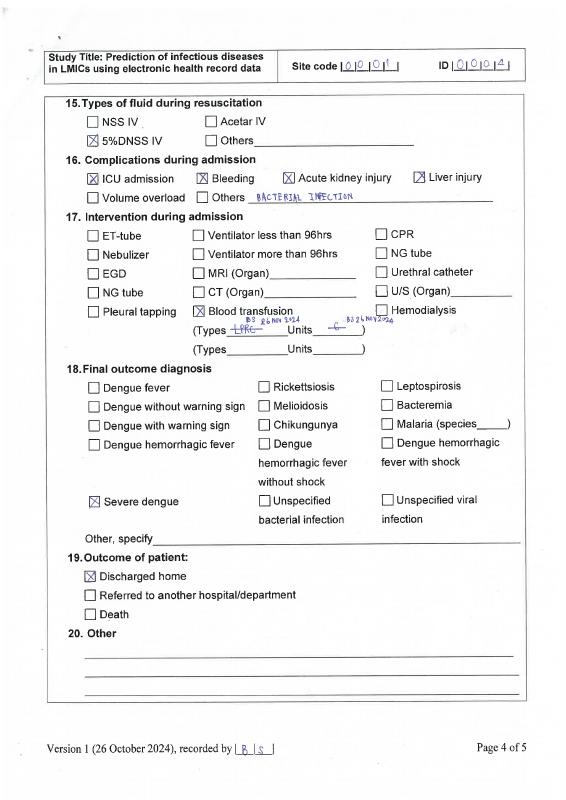 Study Title: Prediction of infectious diseases
in LMICs using electronic health record data
Site code |0|0|0|1| ID |0|0|0|4|
15. Types of fluid during resuscitation
☐ NSS IV ☐ Acetar IV
☒ 5%DNSS IV ☐ Others
16. Complications during admission
☒ ICU admission ☒ Bleeding ☒ Acute kidney injury ☒ Liver injury
☐ Volume overload ☐ Others BACTERIAL INFECTION
17. Intervention during admission
☐ ET-tube ☐ Ventilator less than 96hrs ☐ CPR
☐ Nebulizer ☐ Ventilator more than 96hrs ☐ NG tube
☐ EGD ☐ MRI (Organ) ☐ Urethral catheter
☐ NG tube ☐ CT (Organ) ☐ U/S (Organ)
☐ Pleural tapping ☒ Blood transfusion ☐ Hemodialysis
BS 26 NOV 2024 BS 26 NOV 2024
(Types LPRC Units 6 )
(Types Units )
18. Final outcome diagnosis
☐ Dengue fever ☐ Rickettsiosis ☐ Leptospirosis
☐ Dengue without warning sign ☐ Melioidosis ☐ Bacteremia
☐ Dengue with warning sign ☐ Chikungunya ☐ Malaria (species )
☐ Dengue hemorrhagic fever ☐ Dengue ☐ Dengue hemorrhagic
hemorrhagic fever fever with shock
without shock
☒ Severe dengue ☐ Unspecified ☐ Unspecified viral
bacterial infection infection
Other, specify
19. Outcome of patient:
☒ Discharged home
☐ Referred to another hospital/department
☐ Death
20. Other
Version 1 (26 October 2024), recorded by |B|S| Page 4 of 5